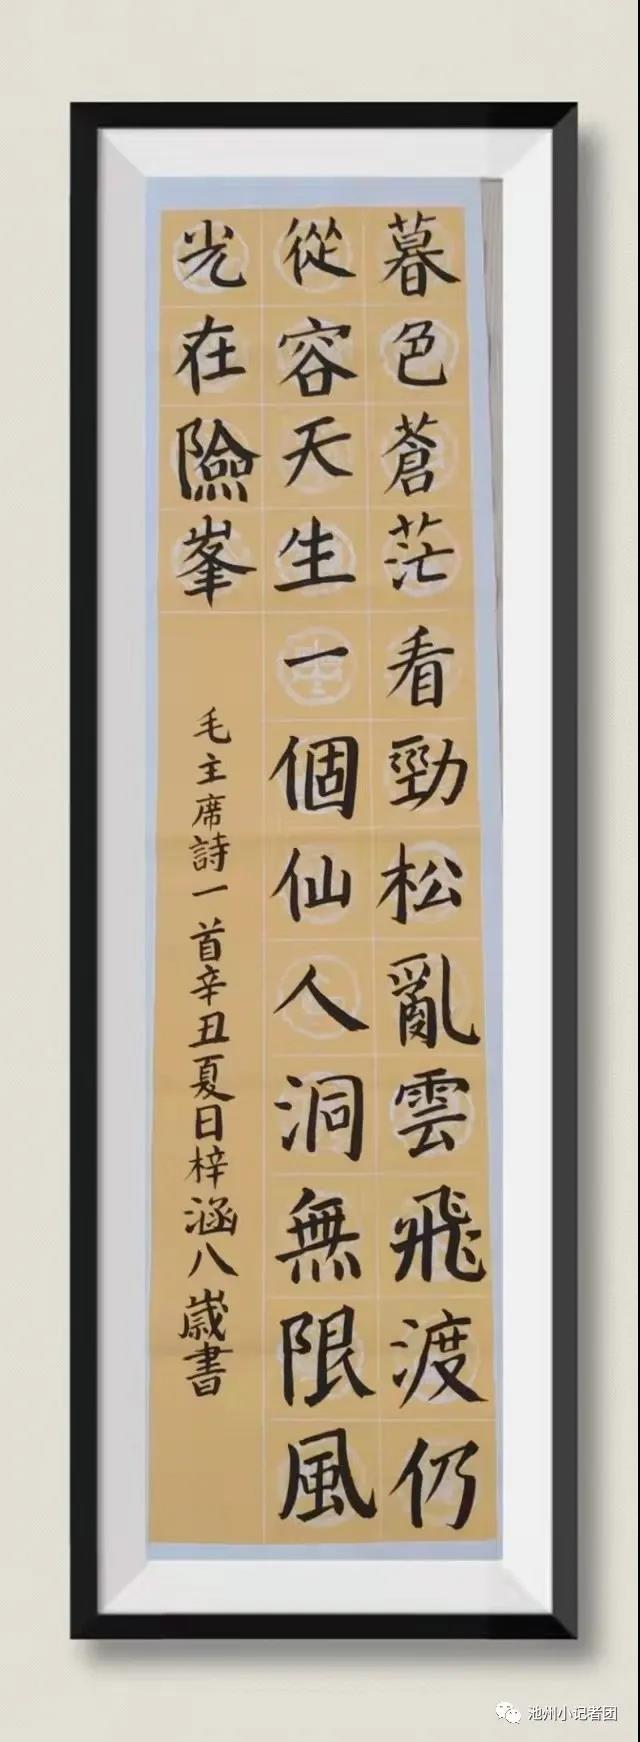 暮色蒼茫看勁松亂雲飛渡仍
從容天生一個仙人洞無限風
光在險峯
毛主席詩一首辛丑夏日梓涵八歲書
池州小记者团